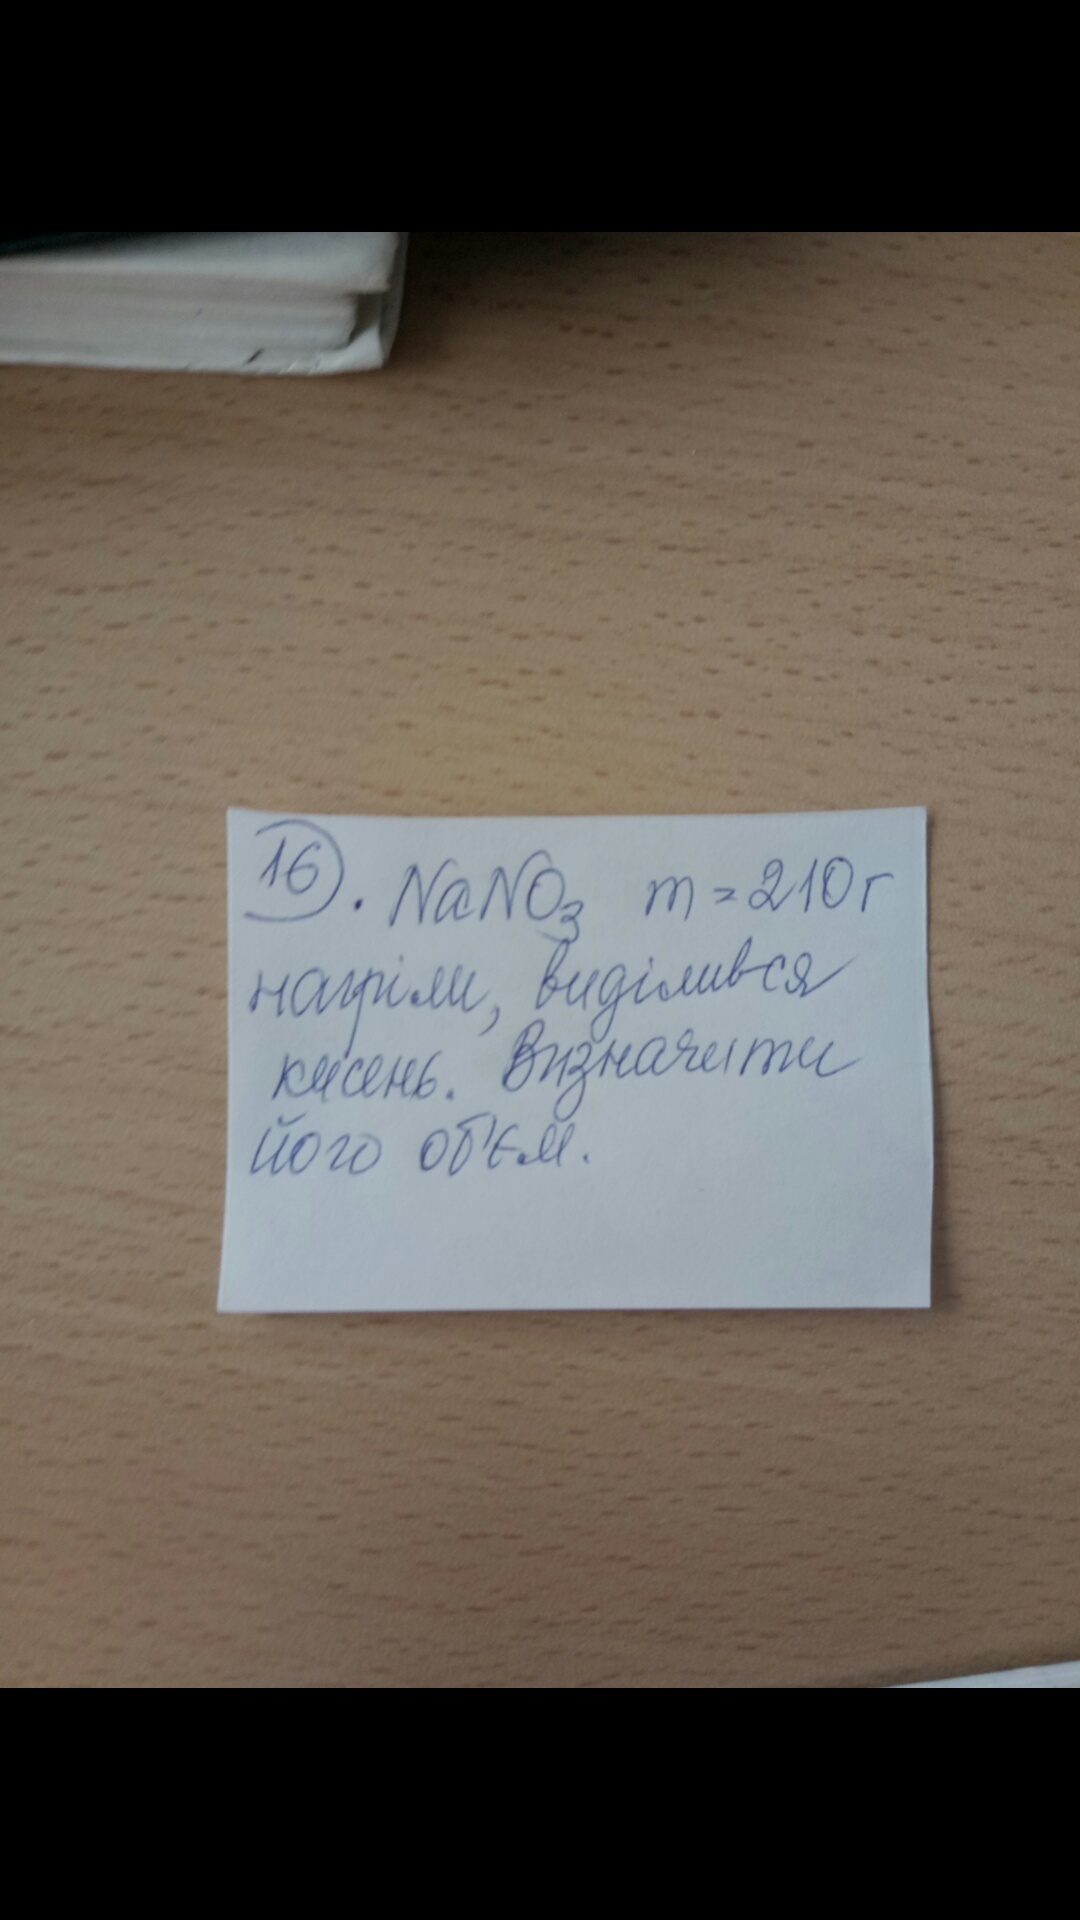 16. NaNO₃ m = 210г
нагріли, виділився
кисень. Визначити
його об'єм.